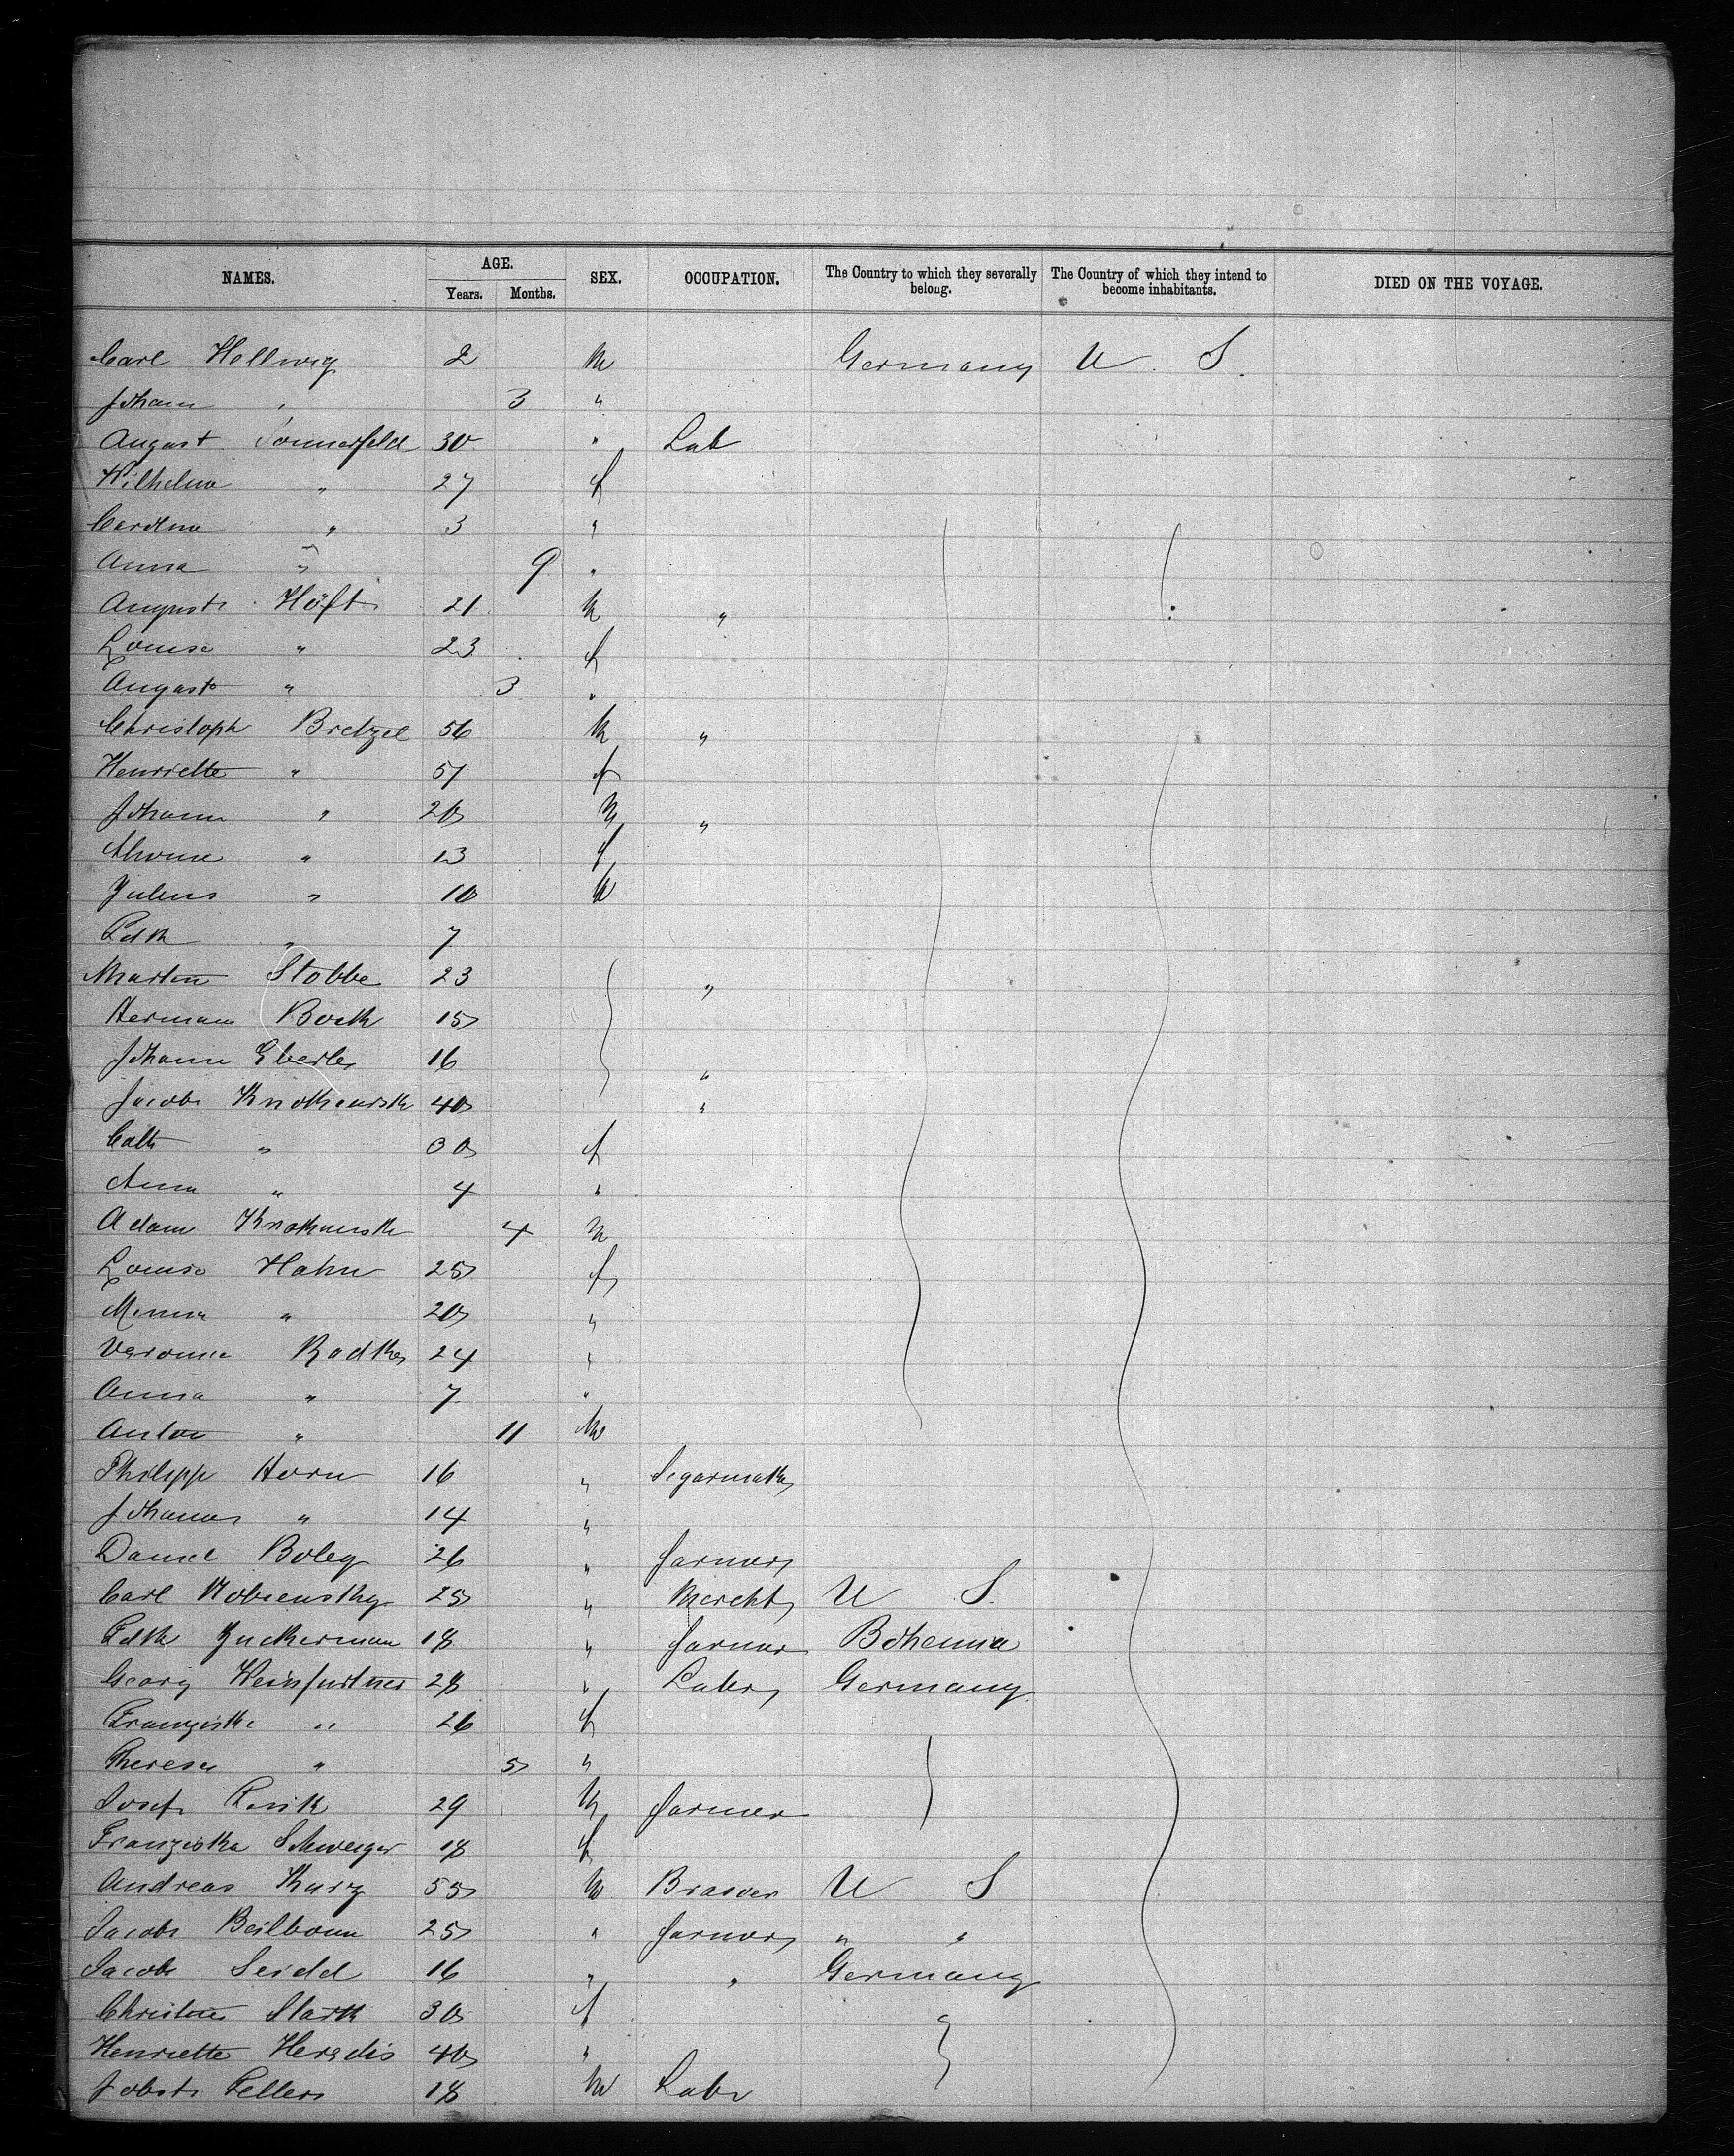 NAMES. AGE. SEX. OCCUPATION. The Country to which they severally belong. The Country of which they intend to become inhabitants. DIED ON THE VOYAGE.
Years. Months.
Carl Hellwig 2 M Germany U. S.
Johann " 3 "
August Sonnerfeld 30 " Lab
Wilhelm " 27 f
Carolina " 3 "
Anna " 9 "
August Höft 21 M "
Louise " 23 f
August " 3 "
Christoph Bretzel 56 M "
Henriette " 51 f
Johann " 20 M "
Alwine " 13 f
Julius " 10 M
" 7
Martin Stobbe 23 "
Herman 15
Johann Eberle 16 "
Jacob 40 "
Cath " 30 f
Anna " 4 "
Adam 4 M
Louise Hahn 25 f
Minna " 20 "
Veronica Radtke 24 "
Anna " 7 "
Anton " 11 M
Philipp Horn 16 " Segarmaker
Johannes " 14 "
Daniel Boley 26 " farmer
Carl 25 " Mercht U S.
Zuckerman 18 " farmer Bohemia
Georg Weinfurtner 28 " Labr Germany
Franziska " 26 f
Theresa " 5 "
Josef 29 M farmer
Franziska Schweiger 18 f
Andreas Kurz 55 M Brawer U S
Jacob Beilbronn 25 " farmer " "
Jacob Seidel 16 " " Germany
Christine Stark 30 f
Henriette 40 "
Jobst Fellers 18 M Labr